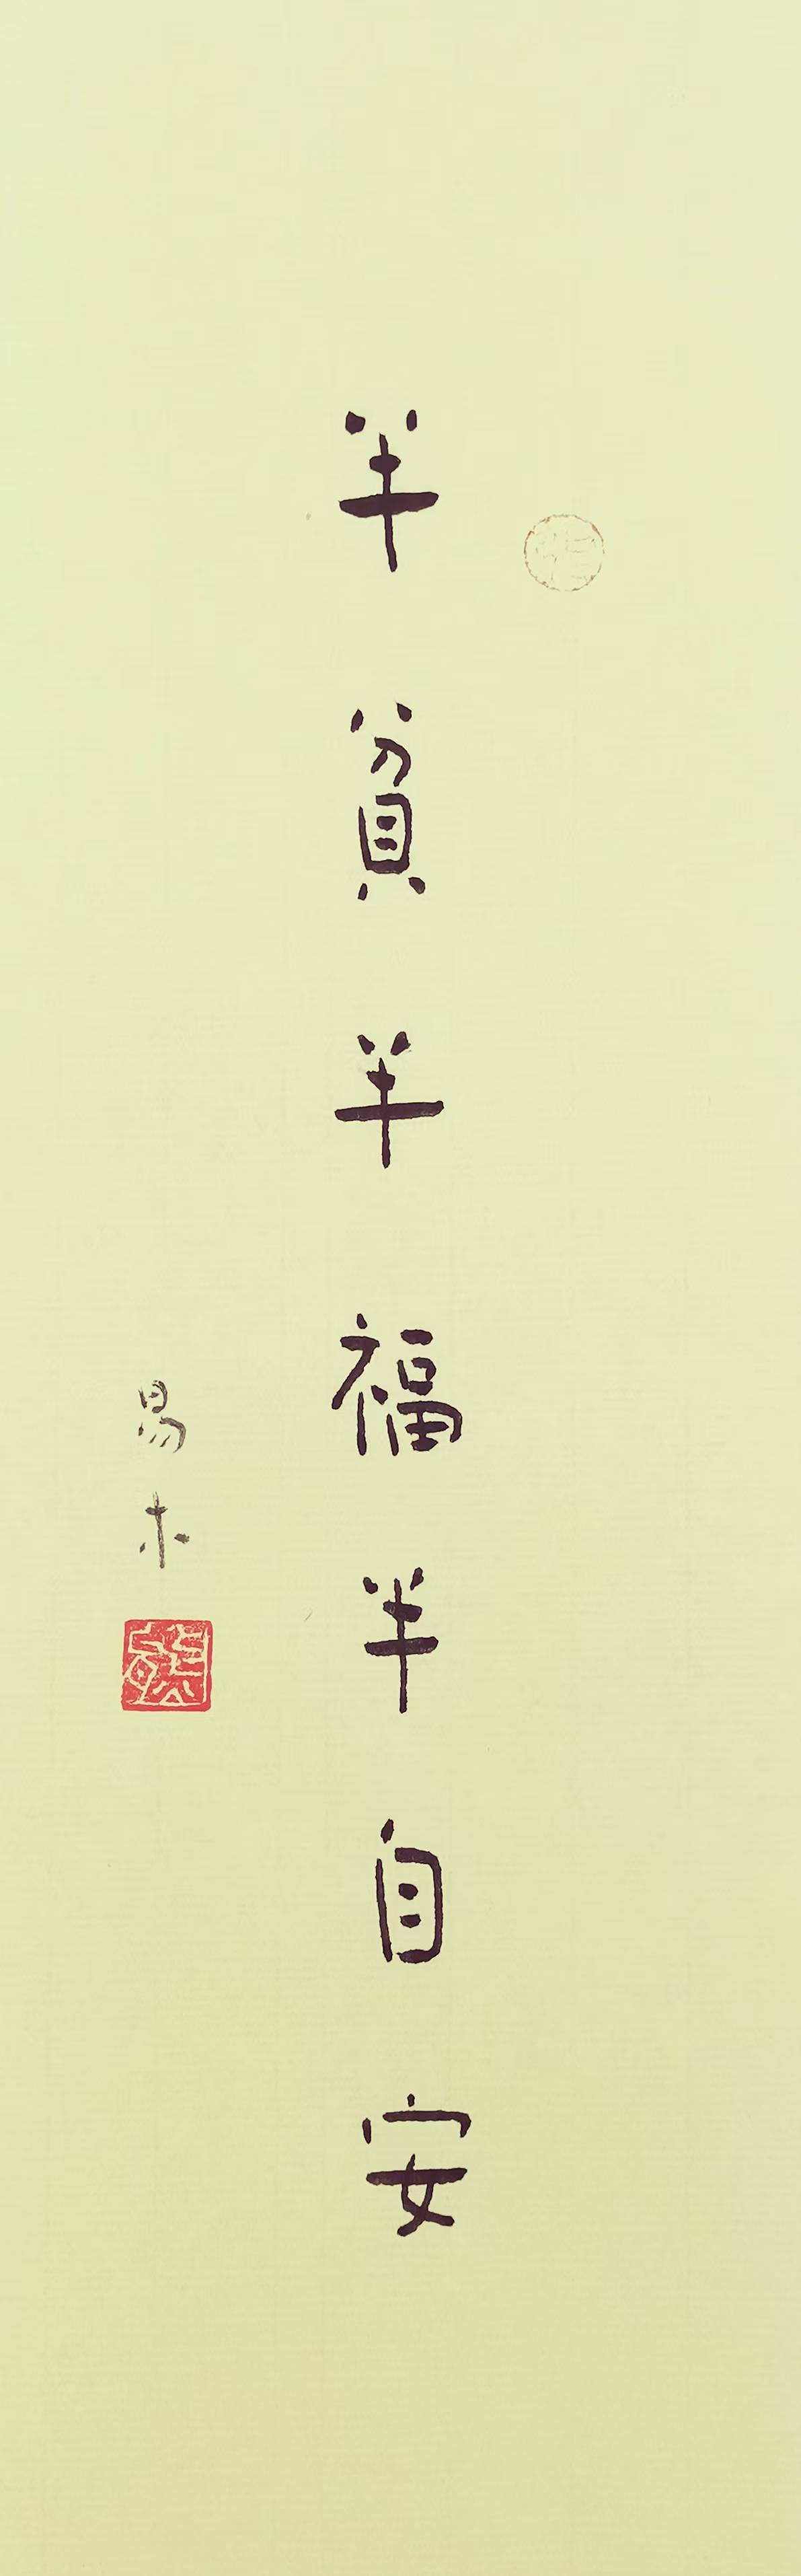 半貧半福半自安
易木